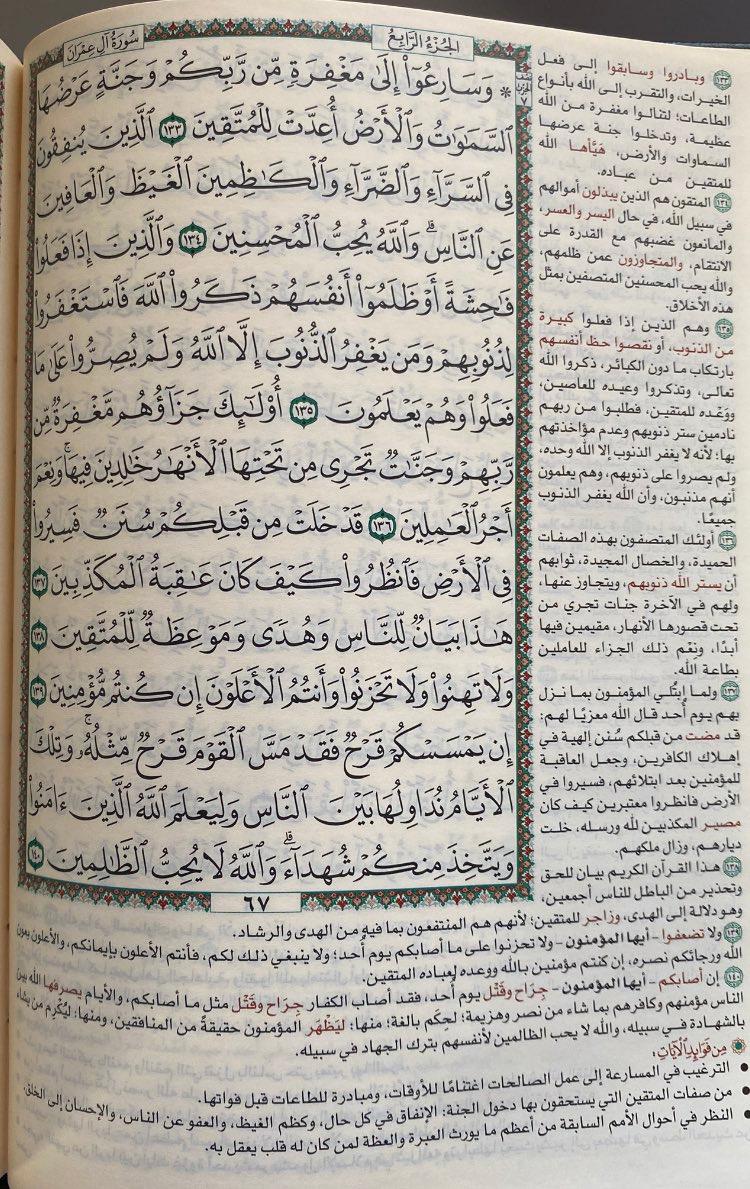 سُورَةُ آلِ عِمْرَانَ
الجُزْءُ الرَّابِعُ
۞ وَسَارِعُوٓا۟ إِلَىٰ مَغْفِرَةٍ مِّن رَّبِّكُمْ وَجَنَّةٍ عَرْضُهَا
ٱلسَّمَٰوَٰتُ وَٱلْأَرْضُ أُعِدَّتْ لِلْمُتَّقِينَ ١٣٣ ٱلَّذِينَ يُنفِقُونَ
فِى ٱلسَّرَّآءِ وَٱلضَّرَّآءِ وَٱلْكَٰظِمِينَ ٱلْغَيْظَ وَٱلْعَافِينَ
عَنِ ٱلنَّاسِۗ وَٱللَّهُ يُحِبُّ ٱلْمُحْسِنِينَ ١٣٤ وَٱلَّذِينَ إِذَا فَعَلُوا۟
فَٰحِشَةً أَوْ ظَلَمُوٓا۟ أَنفُسَهُمْ ذَكَرُوا۟ ٱللَّهَ فَٱسْتَغْفَرُوا۟
لِذُنُوبِهِمْ وَمَن يَغْفِرُ ٱلذُّنُوبَ إِلَّا ٱللَّهُ وَلَمْ يُصِرُّوا۟ عَلَىٰ مَا
فَعَلُوا۟ وَهُمْ يَعْلَمُونَ ١٣٥ أُو۟لَٰٓئِكَ جَزَآؤُهُم مَّغْفِرَةٌ مِّن
رَّبِّهِمْ وَجَنَّٰتٌ تَجْرِى مِن تَحْتِهَا ٱلْأَنْهَٰرُ خَٰلِدِينَ فِيهَاۚ وَنِعْمَ
أَجْرُ ٱلْعَٰمِلِينَ ١٣٦ قَدْ خَلَتْ مِن قَبْلِكُمْ سُنَنٌ فَسِيرُوا۟
فِى ٱلْأَرْضِ فَٱنظُرُوا۟ كَيْفَ كَانَ عَٰقِبَةُ ٱلْمُكَذِّبِينَ ١٣٧
هَٰذَا بَيَانٌ لِّلنَّاسِ وَهُدًى وَمَوْعِظَةٌ لِّلْمُتَّقِينَ ١٣٨
وَلَا تَهِنُوا۟ وَلَا تَحْزَنُوا۟ وَأَنتُمُ ٱلْأَعْلَوْنَ إِن كُنتُم مُّؤْمِنِينَ ١٣٩
إِن يَمْسَسْكُمْ قَرْحٌ فَقَدْ مَسَّ ٱلْقَوْمَ قَرْحٌ مِّثْلُهُۥۚ وَتِلْكَ
ٱلْأَيَّامُ نُدَاوِلُهَا بَيْنَ ٱلنَّاسِ وَلِيَعْلَمَ ٱللَّهُ ٱلَّذِينَ ءَامَنُوا۟
وَيَتَّخِذَ مِنكُمْ شُهَدَآءَۗ وَٱللَّهُ لَا يُحِبُّ ٱلظَّٰلِمِينَ ١٤٠
٦٧
١٣٣ وبادروا وسابقوا إلى فعل
الخيرات، والتقرب إلى الله بأنواع
الطاعات؛ لتنالوا مغفرة من الله
عظيمة، وتدخلوا جنة عرضها
السماوات والأرض، هَيَّأها الله
للمتقين من عباده.
١٣٤ المتقون هم الذين يبذلون أموالهم
في سبيل الله، في حال اليسر والعسر،
والمانعون غضبهم مع القدرة على
الانتقام، والمتجاوزون عمن ظلمهم،
والله يحب المحسنين المتصفين بمثل
هذه الأخلاق.
١٣٥ وهم الذين إذا فعلوا كبيرة
من الذنوب، أو نقصوا حظ أنفسهم
بارتكاب ما دون الكبائر، ذكروا الله
تعالى، وتذكروا وعيده للعاصين،
ووَعْده للمتقين، فطلبوا من ربهم
نادمين ستر ذنوبهم وعدم مؤاخذتهم
بها؛ لأنه لا يغفر الذنوب إلا الله وحده،
ولم يصروا على ذنوبهم، وهم يعلمون
أنهم مذنبون، وأن الله يغفر الذنوب
جميعًا.
١٣٦ أولئك المتصفون بهذه الصفات
الحميدة، والخصال المجيدة، ثوابهم
أن يستر الله ذنوبهم، ويتجاوز عنها،
ولهم في الآخرة جنات تجري من
تحت قصورها الأنهار، مقيمين فيها
أبدًا، ونعْم ذلك الجزاء للعاملين
بطاعة الله.
١٣٧ ولما ابتُلي المؤمنون بما نزل
بهم يوم أُحد قال الله معزيًا لهم:
قد مضت من قبلكم سُنن إلهية في
إهلاك الكافرين، وجعل العاقبة
للمؤمنين بعد ابتلائهم، فسيروا في
الأرض فانظروا معتبرين كيف كان
مصير المكذبين لله ورسله، خلت
ديارهم، وزال ملكهم.
١٣٨ هذا القرآن الكريم بيان للحق
وتحذير من الباطل للناس أجمعين،
وهو دلالة إلى الهدى، وزاجر للمتقين؛ لأنهم هم المنتفعون بما فيه من الهدى والرشاد.
١٣٩ ولا تضعفوا - أيها المؤمنون - ولا تحزنوا على ما أصابكم يوم أُحد؛ ولا ينبغي ذلك لكم، فأنتم الأعلون بإيمانكم، والأعلون بعون
الله ورجائكم نصره، إن كنتم مؤمنين بالله ووعده لعباده المتقين.
١٤٠ إن أصابكم - أيها المؤمنون - جِرَاح وقَتْل يوم أُحد، فقد أصاب الكفار جِرَاح وقَتْل مثل ما أصابكم، والأيام يصرفها الله بين
الناس مؤمنهم وكافرهم بما شاء من نصر وهزيمة؛ لحِكَم بالغة؛ منها: ليَظْهَر المؤمنون حقيقةً من المنافقين، ومنها: ليُكْرِم من يشاء
بالشهادة في سبيله، والله لا يحب الظالمين لأنفسهم بترك الجهاد في سبيله.
مِن فَوَائِدِ الآيَاتِ:
• الترغيب في المسارعة إلى عمل الصالحات اغتنامًا للأوقات، ومبادرة للطاعات قبل فواتها.
• من صفات المتقين التي يستحقون بها دخول الجنة: الإنفاق في كل حال، وكظم الغيظ، والعفو عن الناس، والإحسان إلى الخلق.
• النظر في أحوال الأمم السابقة من أعظم ما يورث العبرة والعظة لمن كان له قلب يعقل به.